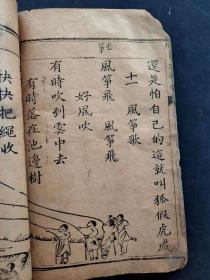 還是怕自己的這就叫狐假虎威
十一 風箏歌
風箏飛 風箏飛
好風吹
有時吹到雲中去
有時落在池邊樹
快快把繩收